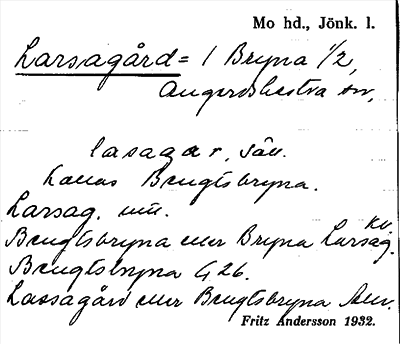 Mo hd., Jönk. l.
Larsagård = 1 Bryna 1/2,
Angerdshestra sn,
lasagar, sån.
Kallas Bengtsbryna.
Larsag. mtl.
Bengtsbryna eller Bryna Larsag. Kv.
Bengtsbryna G 26.
Lassagård eller Bengtsbryna
Fritz Andersson 1932.